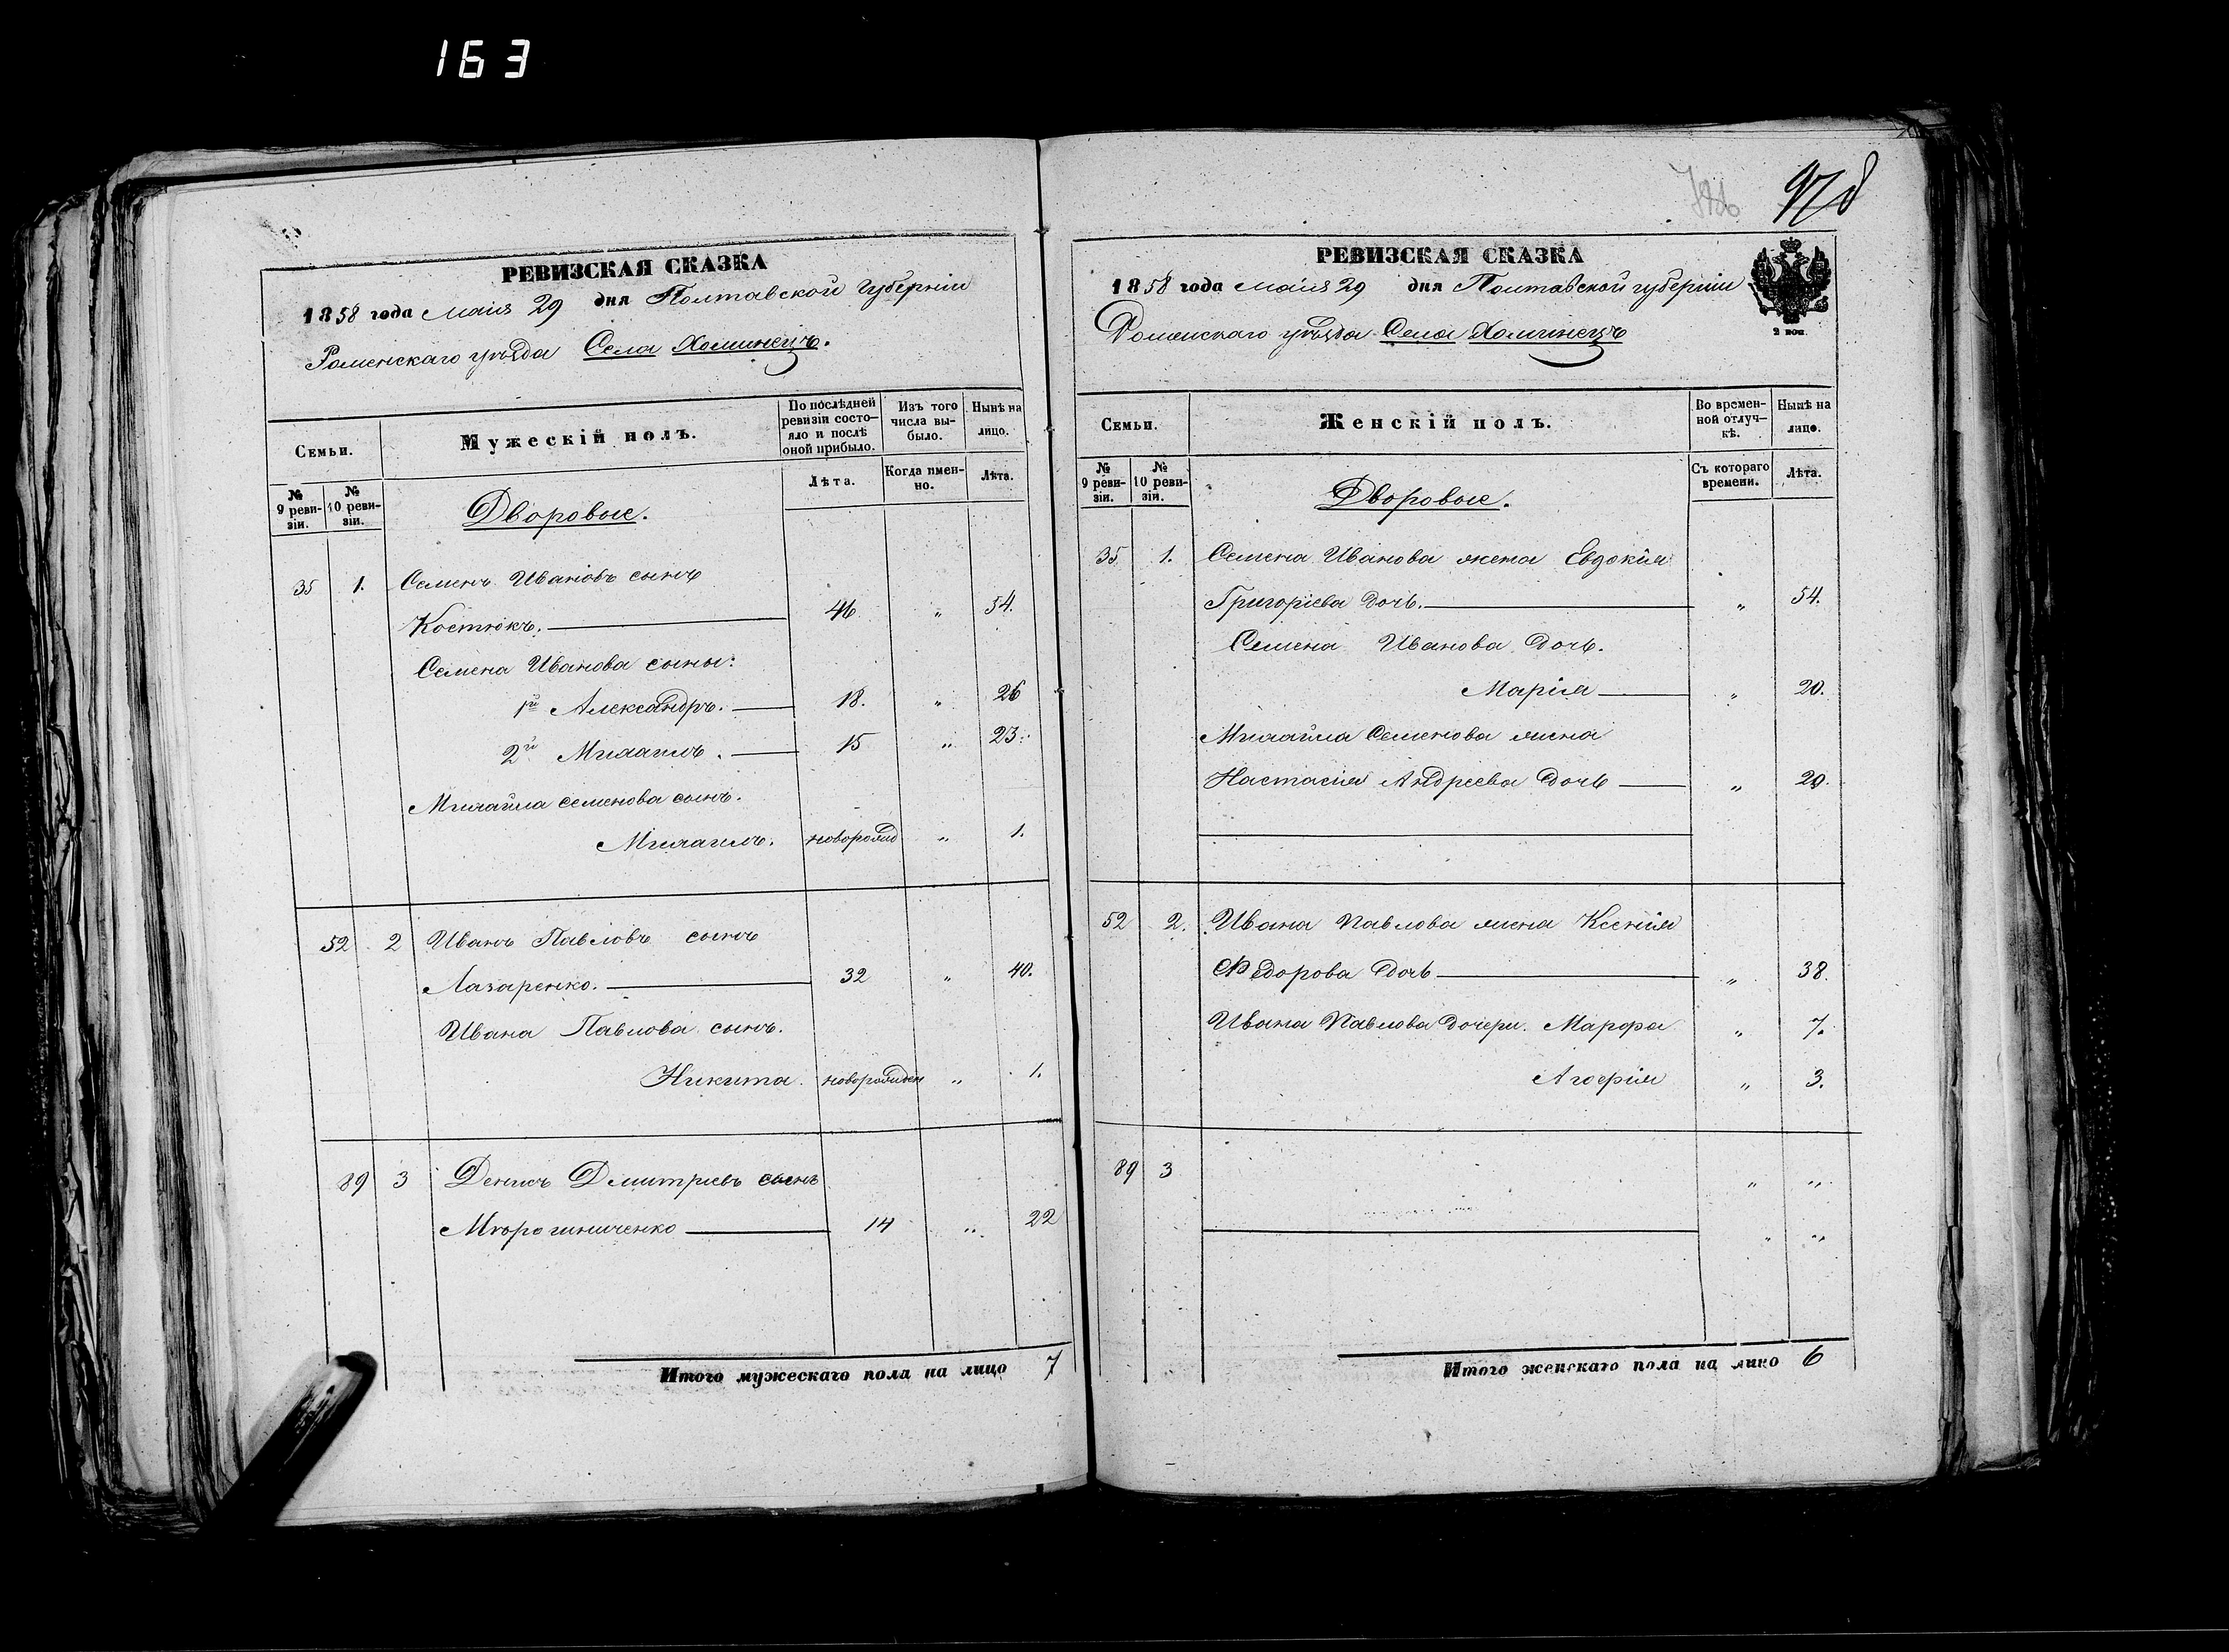 163
978
РЕВИЗСКАЯ СКАЗКА
1858 года Маія 29 дня Полтавской Губерніи
Роменскаго уѣзда Села Хоминецъ.
Семьи.
Мужескій полъ.
По послѣдней ревизіи состояло и послѣ оной прибыло.
Изъ того числа выбыло.
Нынѣ на лицо.
№ 9 ревизіи.
№ 10 ревизіи.
Лѣта.
Когда именно.
Лѣта.
Дворовые.
35 1. Семенъ Ивановъ сынъ
Костюкъ. 46 " 54.
Семена Иванова сыны:
1й Александръ. 18. " 26
2й Михаилъ. 15 " 23.
Михайла Семенова сынъ.
Михаилъ. новорожд " 1.
52 2 Иванъ Павловъ сынъ
Лазаренко. 32 " 40.
Ивана Павлова сынъ.
Никита. новорожден " 1.
89 3 Денисъ Дмитріевъ сынъ
14 " 22
Итого мужескаго пола на лицо 7
РЕВИЗСКАЯ СКАЗКА
1858 года Маія 29 дня Полтавской губерніи
Роменскаго уѣзда Села Хоминецъ
Семьи.
Женскій полъ.
Во временной отлучкѣ.
Нынѣ на лицо.
№ 9 ревизіи.
№ 10 ревизіи.
Съ котораго времени.
Лѣта.
Дворовые.
35 1. Семена Иванова жена Евдокія
Григоріева дочь. " 54.
Семена Иванова дочь.
Марія " 20.
Михайла Семенова жена
Настасія Андреева дочь " 20.
52 2. Ивана Павлова жена Ксенія
Федорова дочь " 38.
Ивана Павлова дочери. Марфа " 7.
" 3.
89 3 " "
" "
Итого женскаго пола на лицо 6